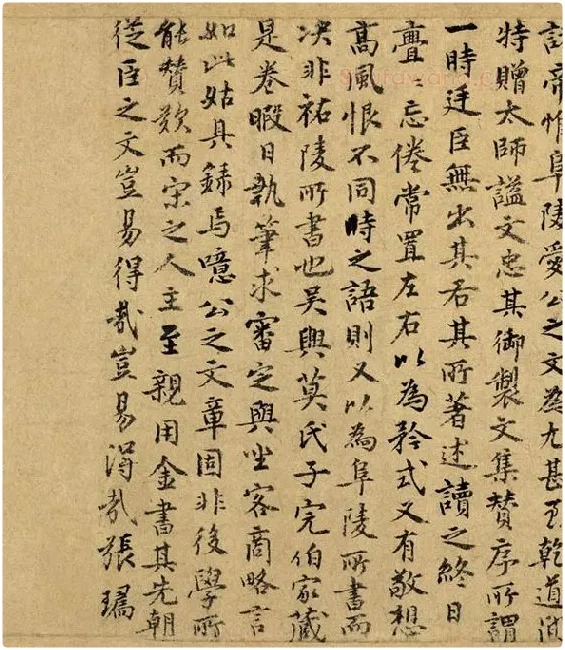 帝惟阜陵愛公之文為尤甚至乾道
特贈太師謚文忠其御製文集贊序所謂
一時廷臣無出其右其所著述讀之終日
亹〻忘倦常置左右以為矜式又有敬想
高風恨不同時之語則又以為阜陵所書而
决非祐陵所書也吳興莫氏子完伯家藏
是卷暇日執筆求審定與坐客商略言
如此姑具録焉噫公之文章固非後學所
能贊歎而宋之人主至親用金書其先朝
從臣之文豈易得哉豈易得哉張